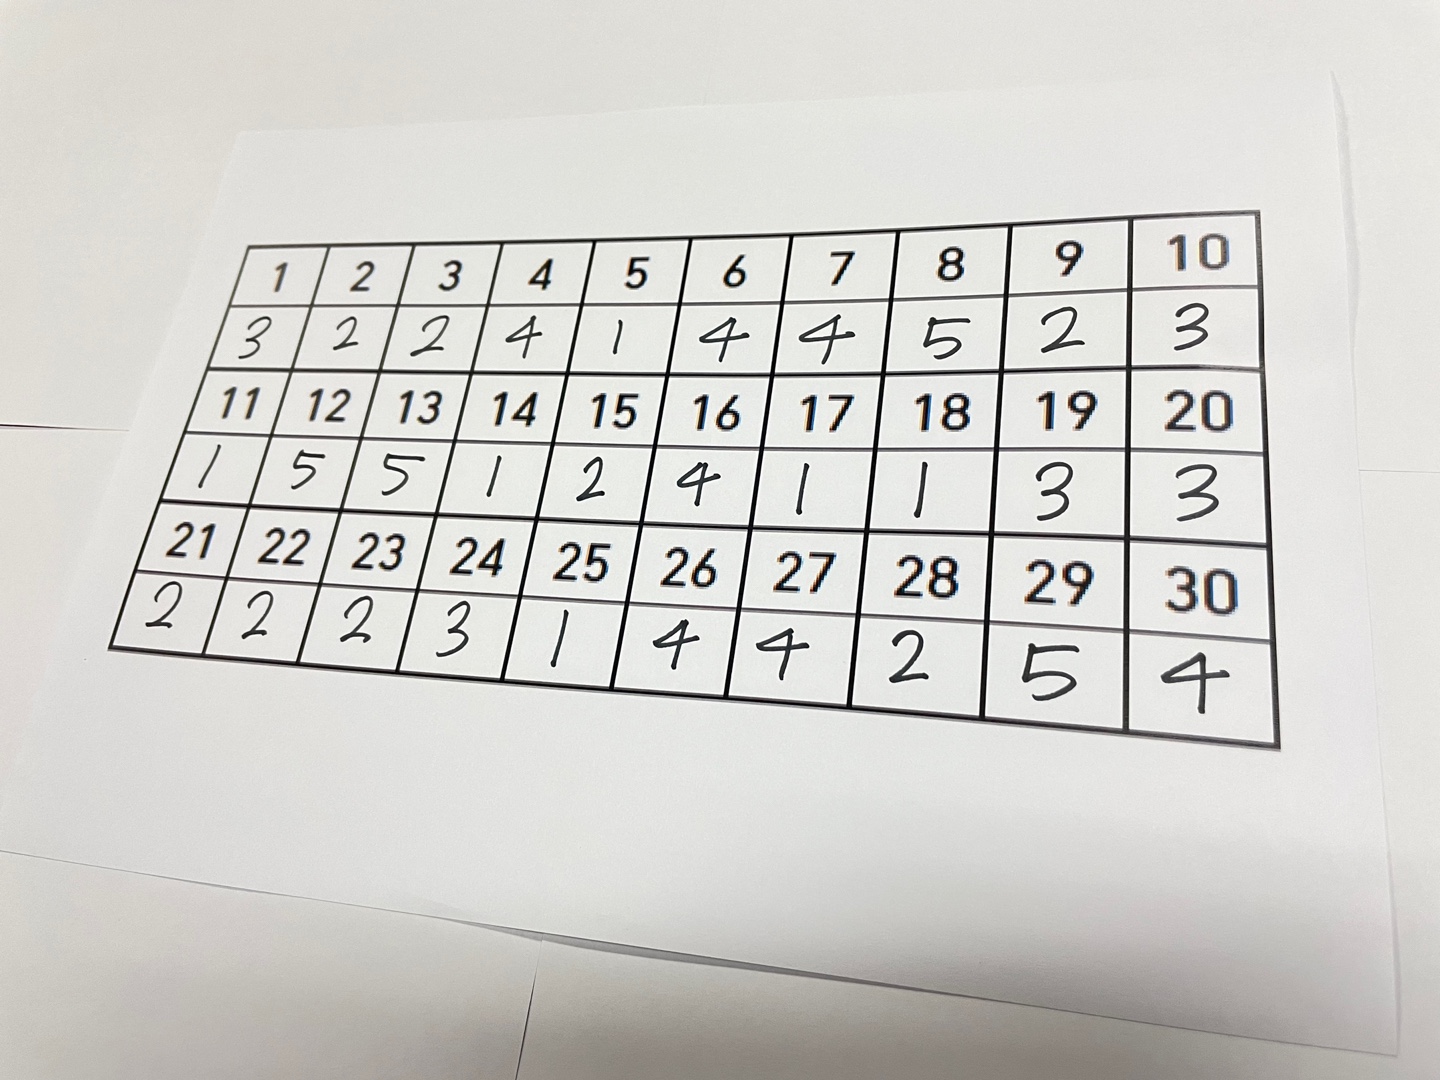 1 2 3 4 5 6 7 8 9 10
3 2 2 4 1 4 4 5 2 3
11 12 13 14 15 16 17 18 19 20
1 5 5 1 2 4 1 1 3 3
21 22 23 24 25 26 27 28 29 30
2 2 2 3 1 4 4 2 5 4